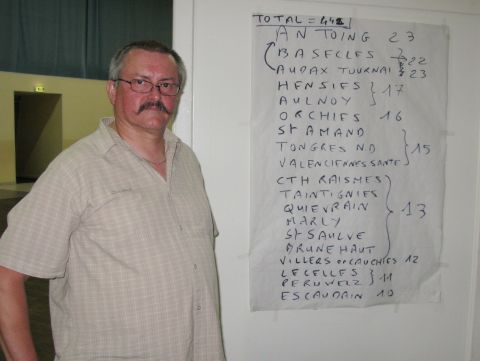 TOTAL = 442
ANTOING 23
BASECLES 22
AUDAX TOURNAI 23
HENSIES
AULNOY } 17
ORCHIES 16
St AMAND
TONGRES N.D } 15
VALENCIENNES SANTE
CTH RAISMES
TAINTIGNIES
QUIEVRAIN
MARLY } 13
St SAULVE
BRUNEHAUT
VILLERS EN CAUCHIES 12
LECELLES
PERUWELZ } 11
ESCAUDAIN 10